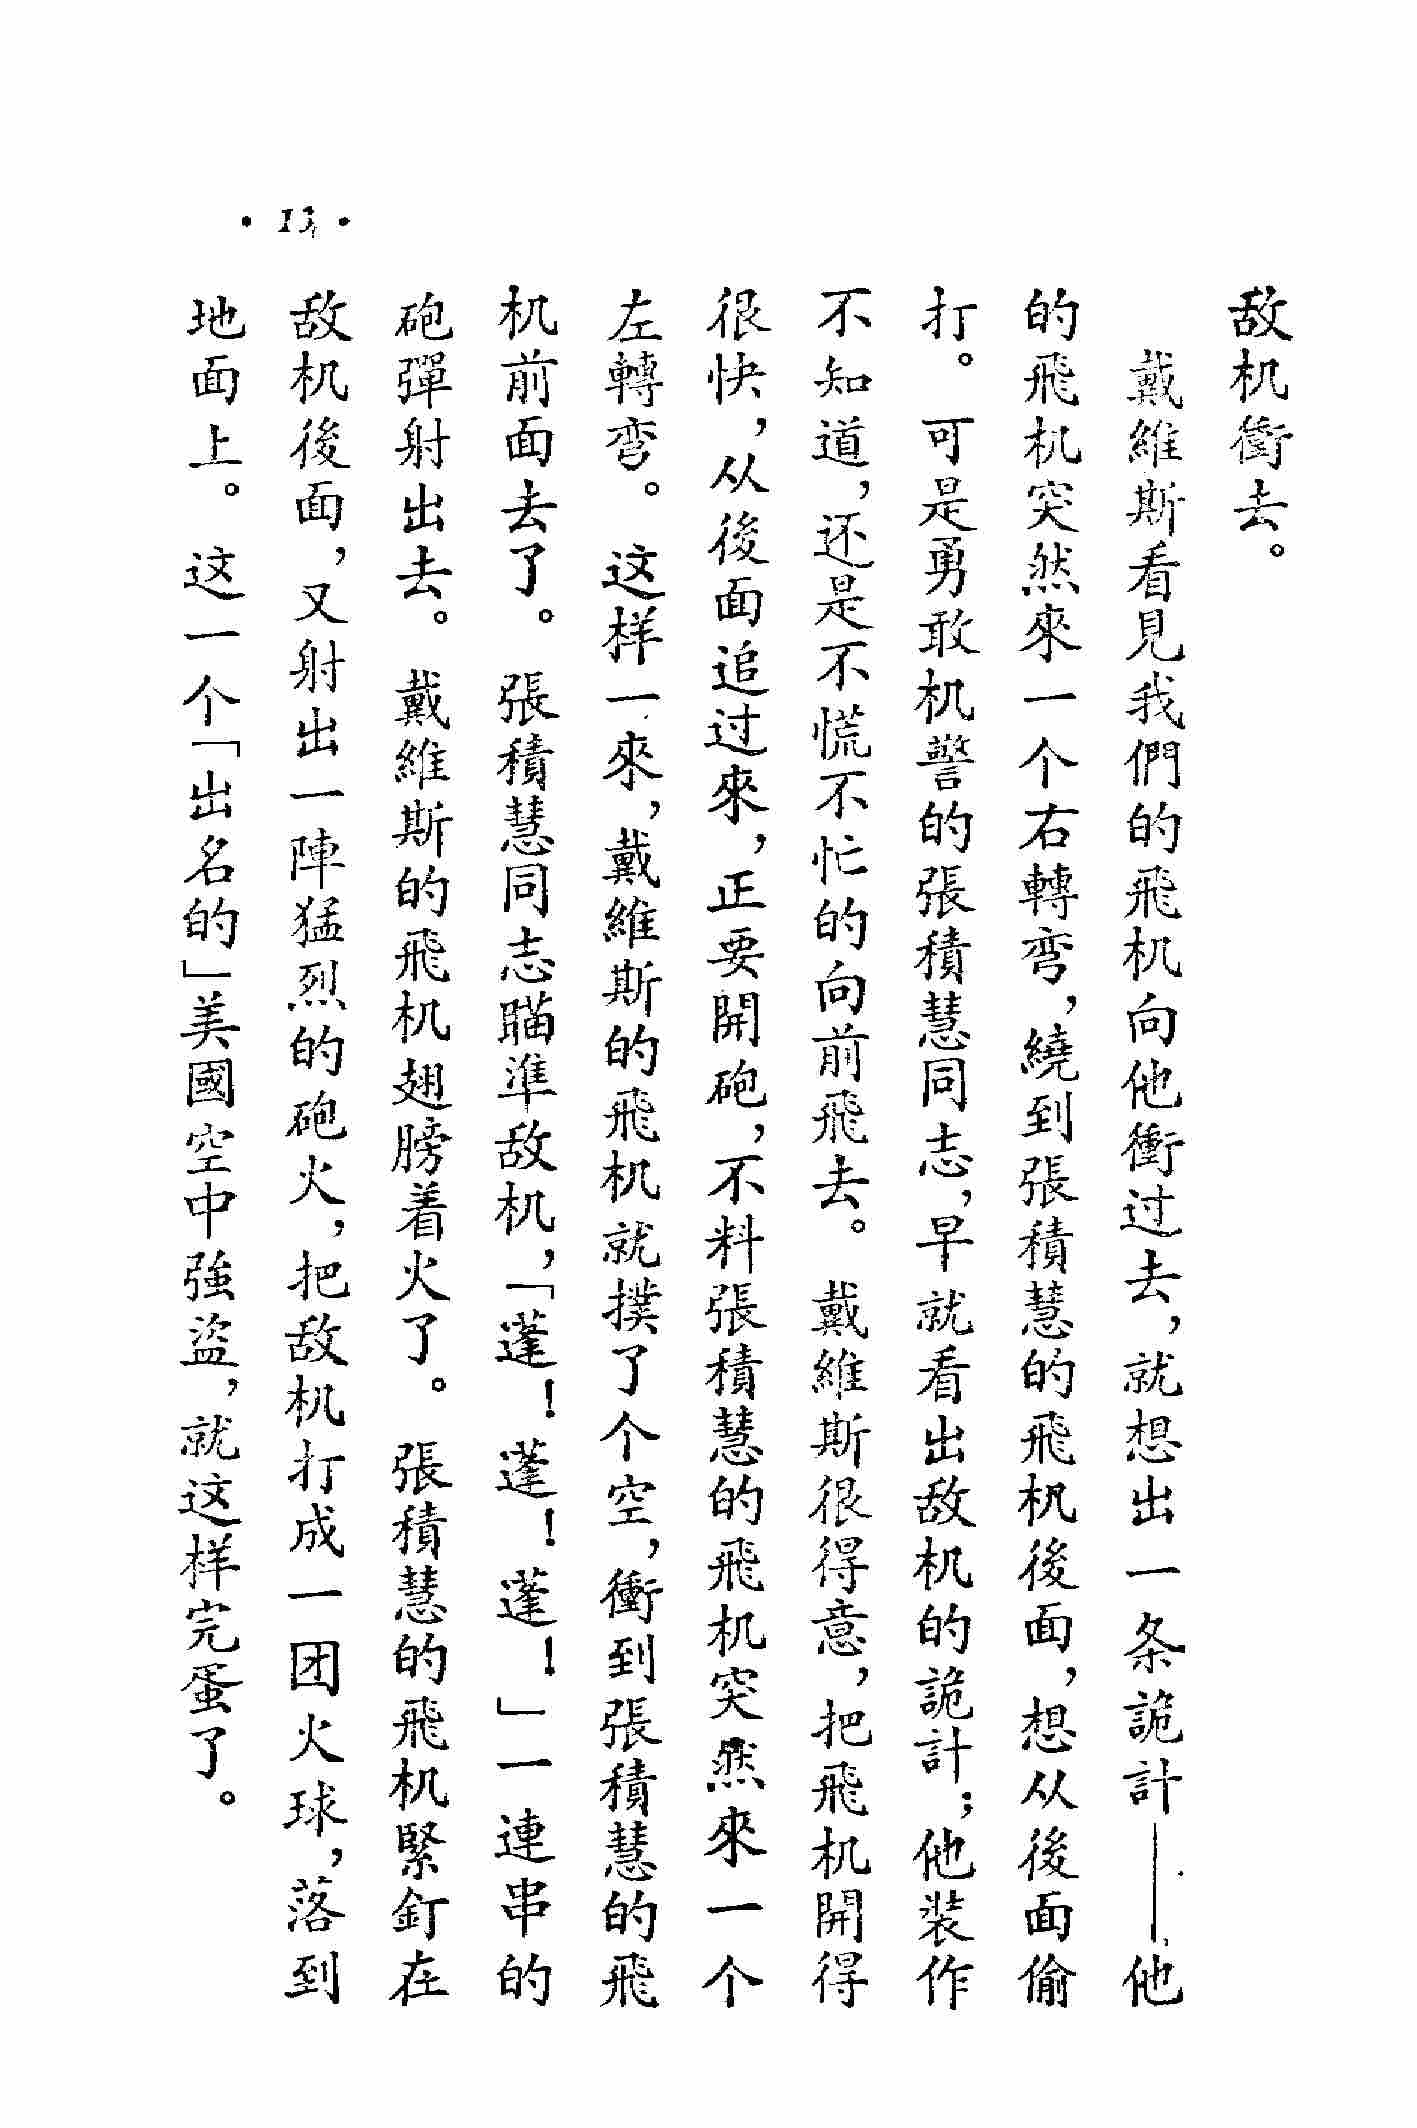 敌机衝去。
戴維斯看見我們的飛机向他衝过去，就想出一条詭計——他
的飛机突然來一个右轉弯，繞到張積慧的飛机後面，想从後面偷
打。可是勇敢机警的張積慧同志，早就看出敌机的詭計；他裝作
不知道，还是不慌不忙的向前飛去。戴維斯很得意，把飛机開得
很快，从後面追过來，正要開砲，不料張積慧的飛机突然來一个
左轉弯。这样一來，戴維斯的飛机就撲了个空，衝到張積慧的飛
机前面去了。張積慧同志瞄準敌机，「蓬！蓬！蓬！」一連串的
砲彈射出去。戴維斯的飛机翅膀着火了。張積慧的飛机緊釘在
敌机後面，又射出一陣猛烈的砲火，把敌机打成一团火球，落到
地面上。这一个「出名的」美國空中強盜，就这样完蛋了。